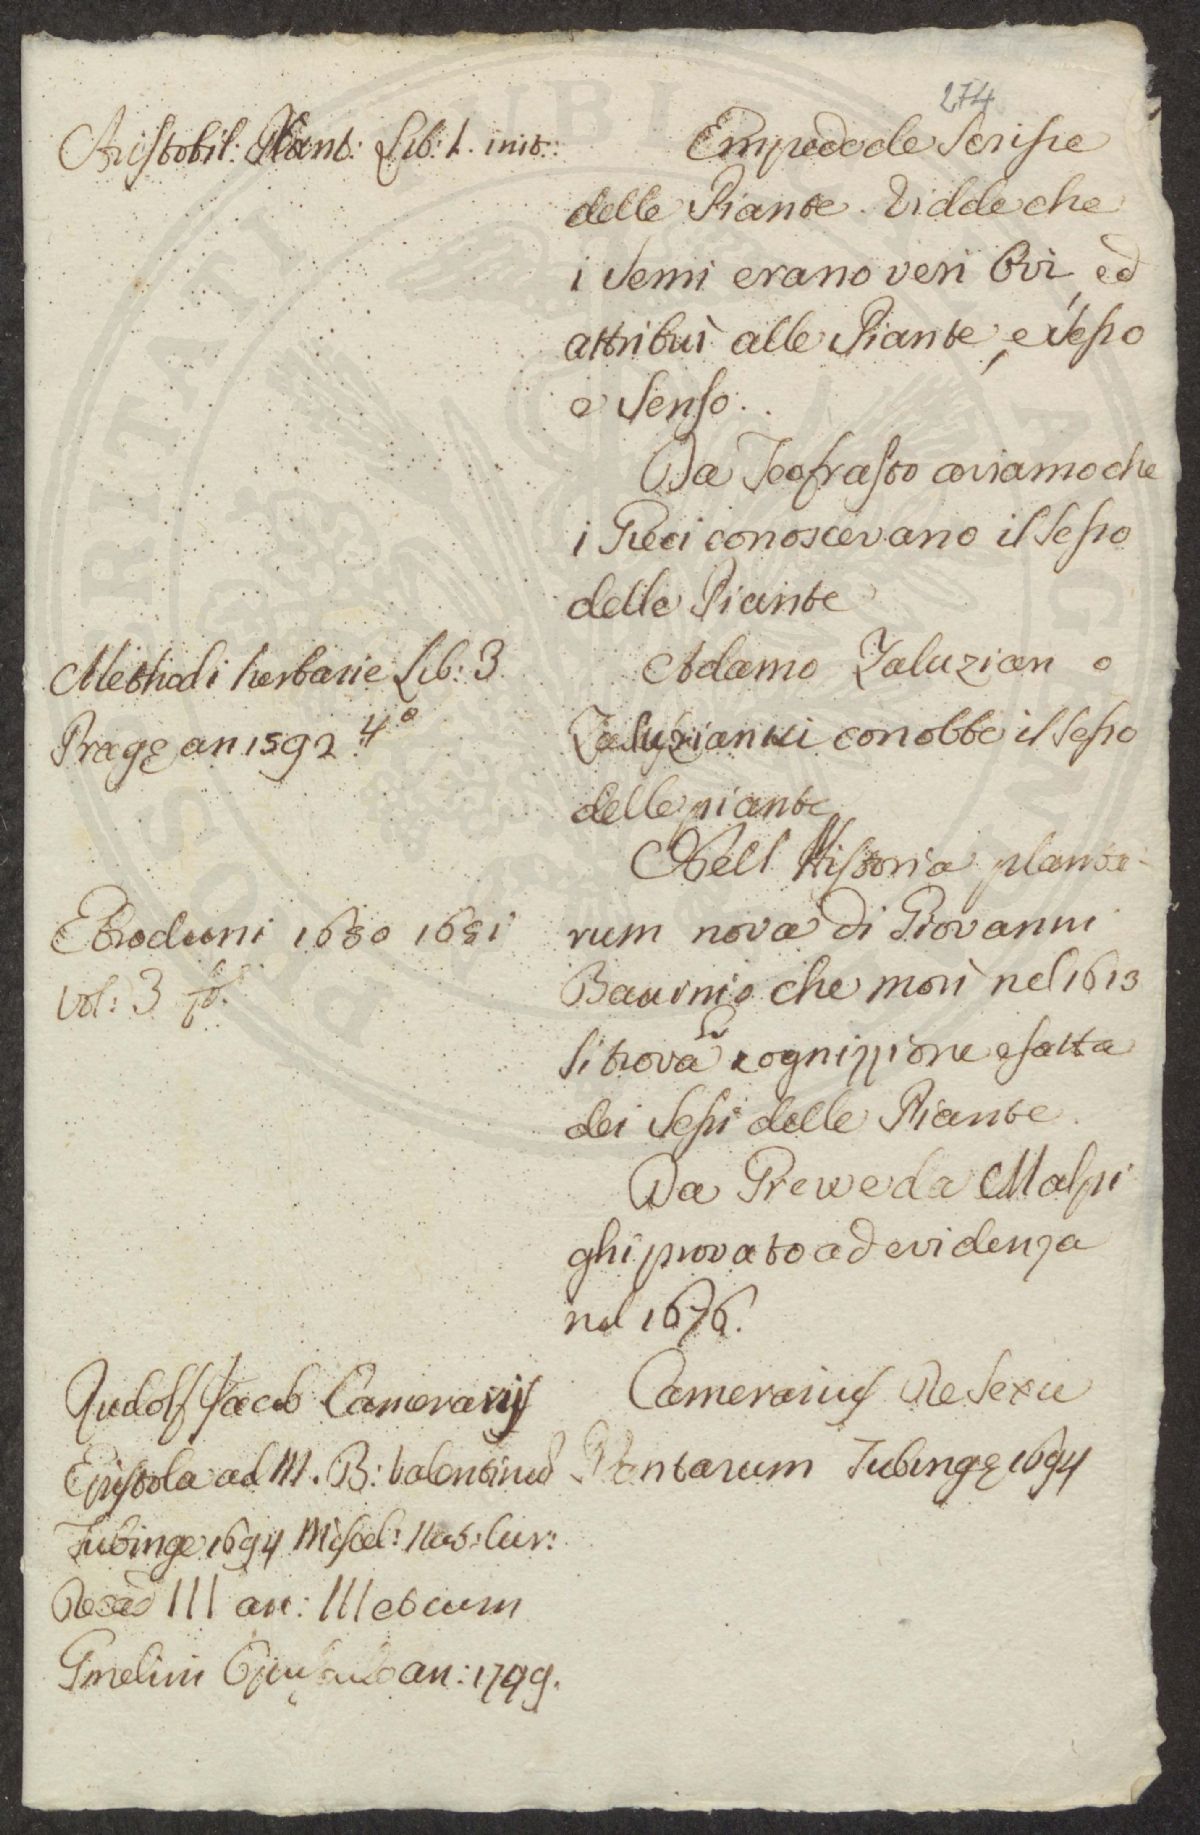 274
Aristotil: Plant: Lib: 1. init::
Empedocle Scrisse
delle Piante. Vidde che
i Semi erano veri Ovi, ed
attribuì alle Piante, e Sesso
e Senso..
Da Teofrasto aviamo che
i Greci conoscevano il Sesso
delle Piante
Methodi herbarie Lib: 3
Pragę an 1592 4°
Adamo Zaluzian o
Zaluzianui conobbe il Sesso
delle piante
Nell Historia planta-
rum nova di Giovanni
Bauvnio che morì nel 1613
si trova la cognizzione esatta
dei Sessi delle Piante.
Ebroduni 1650 1651
Vol: 3 fol.
Da Grewe da Malpi
ghi provato ad evidenza
nel 1676.
Rudolf Jacob Camerarij
Epistola ad M. B: Valentinud
Tubinge 1694 Miscel: Nat: Cur:
Decad III an: III et cum
Gmelini an: 1749.
Camerarius De Sexu
Plantarum Tubingę 1694